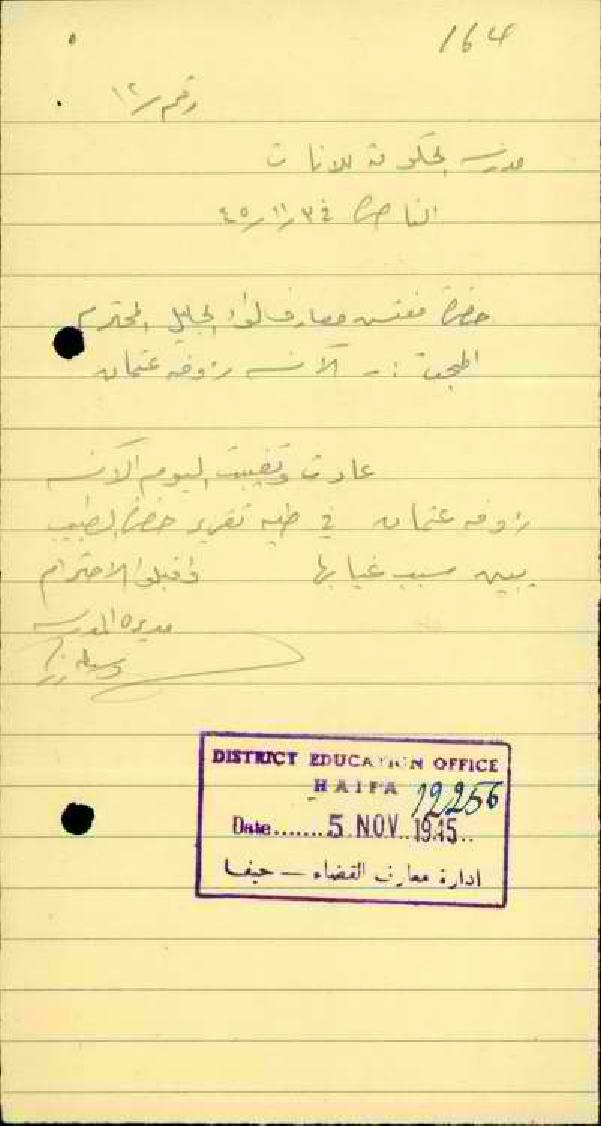 164
رقم / ١٢
مدرسة الحكومة للاناث
الناصرة في ٣ / ١١ / ٤٥
حضرة مفتش معارف لواء الجليل المحترم
المبحث :- الآنسه رؤوفه عثمان
عادت اليوم الآنسه
رؤوفه عثمان في طيه تقرير حضرة الطبيب
يبين سبب غيابها واقبلوا الاحترام
مديرة المدرسه
DISTRICT EDUCATION OFFICE
HAIFA 12256
Date........5 NOV. 1945..
ادارة معارف القضاء — حيفا